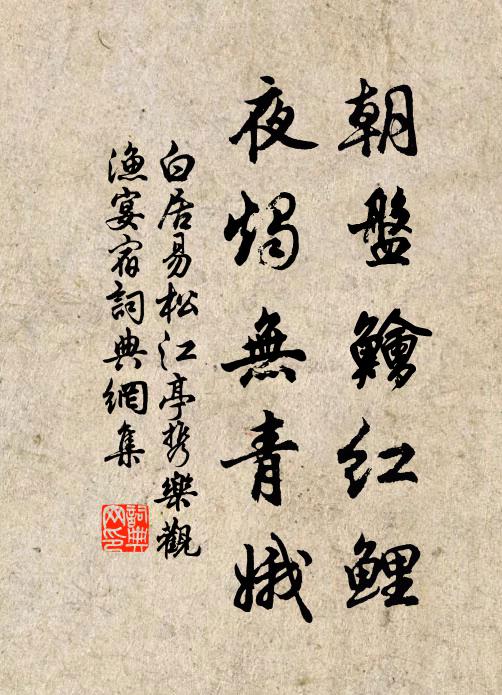 朝盤鱠紅鯉
夜燭無青娥
白居易松江亭攜樂觀
漁宴宿詞典網集
詞典
网印